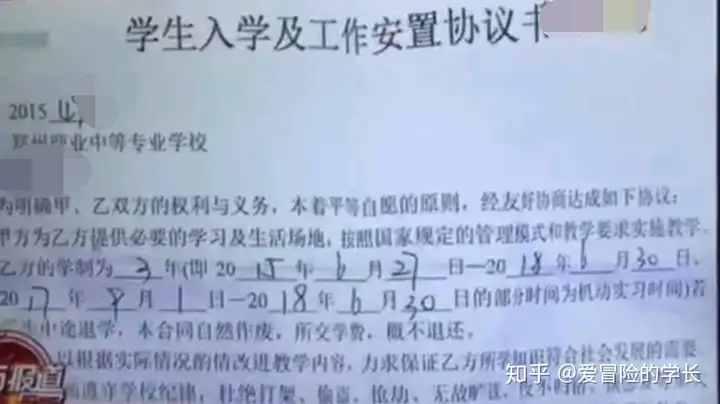 学生入学及工作安置协议书
2015
郑州商业中等专业学校
为明确甲、乙双方的权利与义务，本着平等自愿的原则，经友好协商达成如下协议：
甲方为乙方提供必要的学习及生活场地，按照国家规定的管理模式和教学要求实施教学。
乙方的学制为 3 年(即 2015 年 6 月 27 日—2018 年 6 月 30 日，
2017 年 9 月 1 日—2018 年 6 月 30 日的部分时间为机动实习时间)若
生中途退学，本合同自然作废，所交学费，概不退还。
以根据实际情况酌情改进教学内容，力求保证乙方所学知识符合社会发展的需要
遵守学校纪律，杜绝打架、偷盗、抢劫、无故旷课、夜不归宿、
报道
知乎 @爱冒险的学长